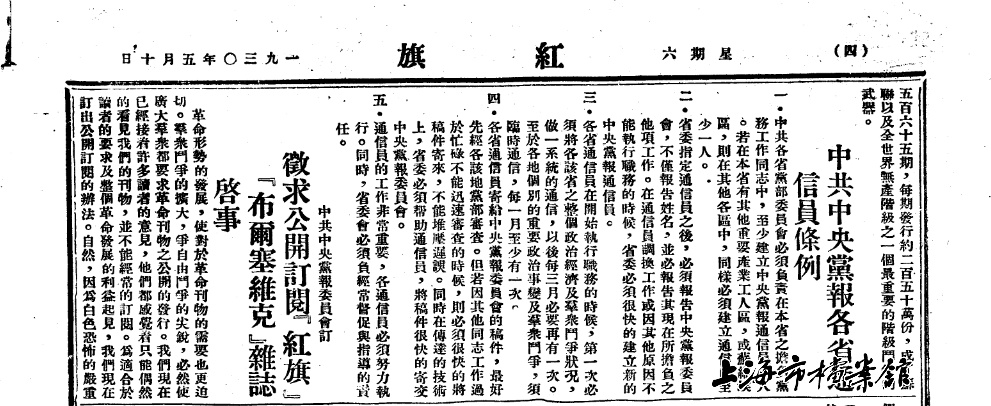 (四)
星期六
紅旗
一九三〇年五月十日
五百六十五期，每期發行約二百五十萬份，成
聯以及全世界無產階級之一個最重要的階級鬥
武器。
中共中央黨報各省
信員條例
一·中共各省黨部委員會必須負責在本省之擔
務工作同志中，至少建立中央黨報通信員
。若在本省有其他重要產業工人區，或蘇維
區，則在其他各區中，同樣必須建立通信至
少一人。
二·省委指定通信員之後，必須報告中央黨報委員
會，不僅報告姓名，並必報告其現在所擔負之
他項工作。在通信員調換工作或因其他原因不
能執行職務的時候，省委必須很快的建立新的
中央黨報通信員。
三·各省通信員在開始執行職務的時候，第一次必
須將各該省之整個政治經濟及羣衆鬥爭狀況，
做一系統的通信，以後每三月必要再有一次。
至於各地個別的重要政治事變及羣衆鬥爭，須
臨時通信，每一月至少有一次。
四·各省通信員寄給中央黨報委員會的稿件，最好
先經各該地黨部審查。但若因其他同志工作過
於忙碌不能迅速審查的時候，則必須很快的將
稿件寄來，不能堆壓遲誤。同時在傳達的技術
上，省委必須帮助通信員，將稿件很快的寄交
中央黨報委員會。
五·通信員的工作非常重要，各通信員必須努力執
行。同時，省委會必須負經常督促與指導的責
任。
中共中央黨報委員會訂
徵求公開訂閱『紅旗』
『布爾塞維克』雜誌
啓事
革命形勢的發展，使對於革命刊物的需要也更迫
切。羣衆鬥爭的擴大，爭自由鬥爭的尖銳，必然使
廣大羣衆都要求革命刊物之公開的發行。我們現在
已經接着許多讀者的意見，他們都感覺着只能偶然
的看見我們的刊物，並不能經常的訂閱。爲適合於
讀者的要求及整個革命發展的利益起見，我們現在
訂出公開訂閱的辦法。自然，因爲白色恐怖的嚴重
上海市档案館